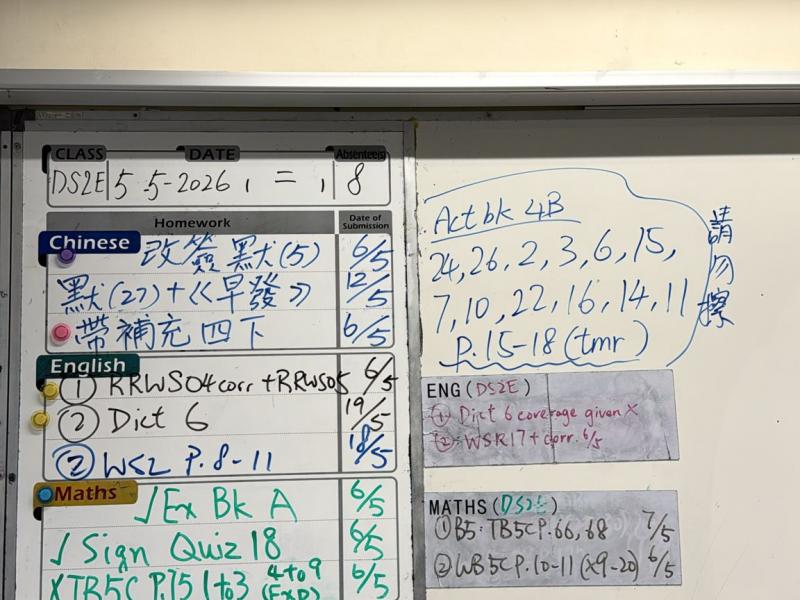 CLASS DATE Absentees
DS2E 5-5-2026, 二, 8
Homework Date of Submission
Chinese 改簽默(5) 6/5
默(27)+《早發》 12/5
帶補充四下 6/5
English
① RRWS04 corr + RRWS05 6/5
② Dict 6 19/5
② WS2 P.8-11 18/5
Maths √Ex Bk A 6/5
√Sign Quiz 18 6/5
XTB5C P.75 1to3 4to9 (Exp) 6/5
Act bk 4B
24, 26, 2, 3, 6, 15,
7, 10, 22, 16, 14, 11
P.15-18 (tmr)
請勿擦
ENG (DS2E)
① Dict 6 coverage given X
② WSR17 + corr. 6/5
MATHS (DS2E)
① B5: TB5C P.66, 68 7/5
② WB5C P.10-11 (x9-20) 6/5